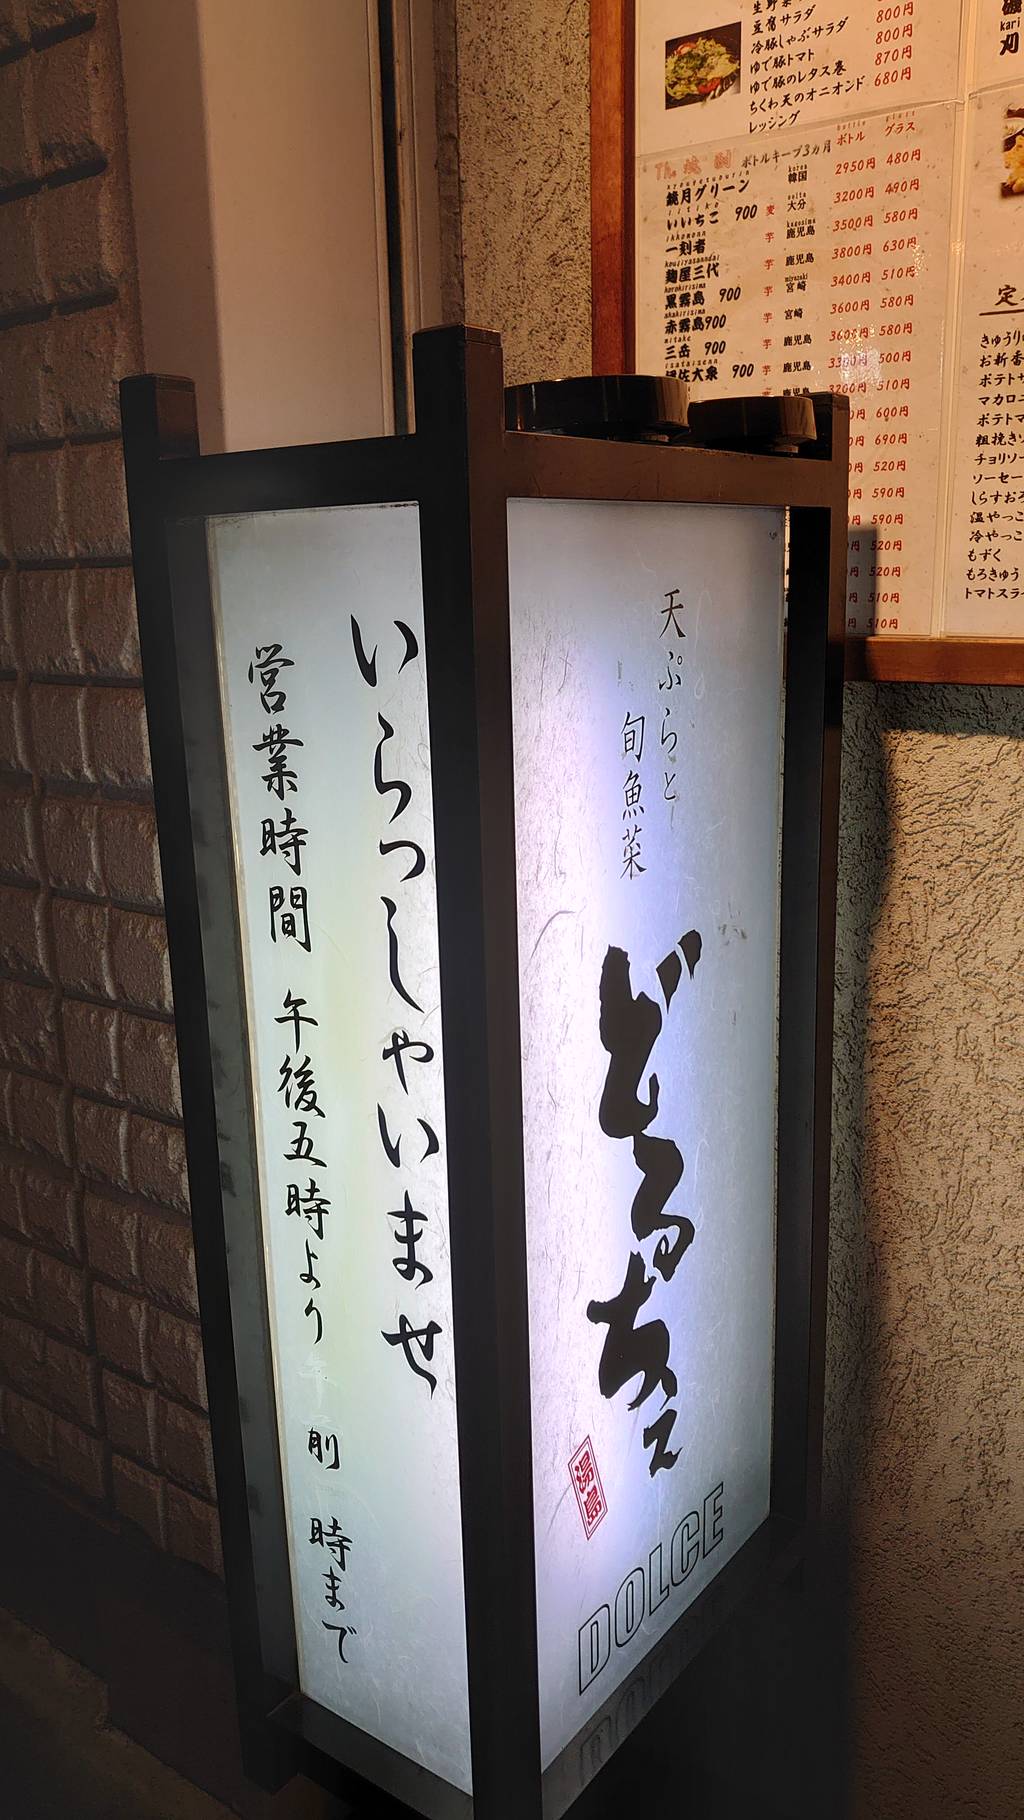 いらっしゃいませ
営業時間 午後五時より 前 時まで
天ぷらと
旬魚菜
どるちえ
湯島
DOLCE
豆腐サラダ 800円
冷豚しゃぶサラダ 800円
ゆで豚トマト 870円
ゆで豚のレタス巻 680円
ちくわ天のオニオンド
レッシング
ボトルキープ3ヵ月 ボトル グラス
鏡月グリーン 韓国 2950円 480円
いいちこ 900 麦 大分 3200円 490円
一刻者 芋 鹿児島 3500円 580円
麹屋三代 芋 鹿児島 3800円 630円
黒霧島 900 芋 宮崎 3400円 510円
赤霧島 900 芋 宮崎 3600円 580円
三岳 900 芋 鹿児島 3600円 580円
伊佐大泉 900 芋 鹿児島 3300円 500円
芋 鹿児島 3200円 510円
600円
690円
520円
590円
590円
520円
520円
510円
510円
kari
刈
きゅうり
お新香
ポテトサ
マカロニ
ポテトマ
粗挽き
チョリソー
ソーセー
しらすおろ
温やっこ
冷やっこ
もずく
もろきゅう
トマトスライ